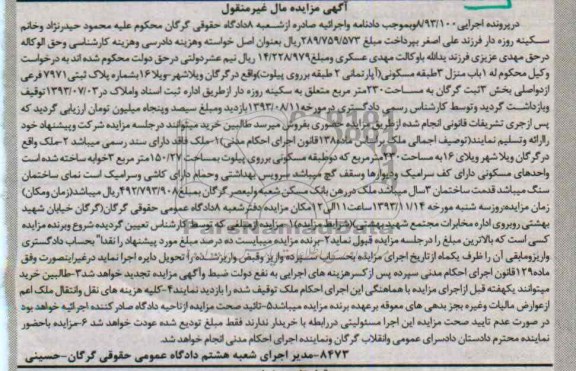 آگهی مزایده مال غیرمنقول
درپرونده اجرایی ۸/۹۳/۱۰۰ وبموجب دادنامه واجرائیه صادره ازشعبه ۸دادگاه حقوقی گرگان محکوم علیه محمود حیدرنژاد وخانم
سکینه روزه دار فرزند علی اصغر بپرداخت مبلغ ۲۸۹/۷۵۹/۵۷۳ریال بعنوان اصل خواسته وهزینه دادرسی وهزینه کارشناسی وحق الوکاله
درحق مهدی عزیزی فرزند یدالله باوکالت مهدی عسکری ومبلغ ۱۴/۲۲۸/۹۷۹ریال نیم عشردولتی درحق دولت محکوم شده اند به درخواست
وکیل محکوم له ۱باب منزل ۳طبقه مسکونی(آپارتمانی ۲ طبقه برروی پیلوت)واقع درگرگان ویلاشهر-ویلا۱۶بشماره پلاک ثبتی ۷۹۷۱ فرعی
ازدواصلی بخش ۳ثبت گرگان به مساحت ۲۳۰متر مربع متعلق به سکینه روزه دار ازطریق اداره ثبت اسناد واملاک در۱۳۹۳/۰۷/۰۳توقیف
وبازداشت گردید وتوسط کارشناس رسمی دادگستری درمورخه ۱۳۹۳/۰۸/۱۱بازدید ومبلغ سیصد وپنجاه میلیون تومان ارزیابی گردید که
پس ازجری تشریفات قانونی انجام شده ازطریق مزایده حضوری بفروش میرسد طالبین خرید میتوانند درجلسه مزایده شرکت وپیشنهاد خود
راارائه وتسلیم نمایند(توصیف اجمالی ملک براساس ماده۱۳۸قانون اجرای احکام مدنی)۱-ملک فاقد دارای سند رسمی میباشد ۲-ملک واقع
در گرگان ویلا شهر ویلای ۱۶به مساحت ۲۳۰مترمربع که دوطبقه مسکونی برروی پیلوت بمساحت ۱۵۰/۲۷متر مربع ۳خوابه ساخته شده است
واحدهای مسکونی دارای کف سرامیک ودیوارها وسقف گچ میباشد سرویس بهداشتی وحمام دارای کاشی وسرامیک است نمای ساختمان
سنگ میباشد قدمت ساختمان ۳سال میباشد ملک دررهن بانک مسکن شعبه ولیعصر گرگان بمبلغ ۴۹۲/۷۹۳/۹۰۸ریال میباشد(زمان ومکان)
زمان مزایده:روزسه شنبه مورخه ۱۳۹۳/۱۱/۱۴ساعت۱۱الی۱۲مکان مزایده دفترشعبه ۸دادگاه عمومی حقوقی گرگان(گرگان خیابان شهید
بهشتی روبروی اداره مخابرات مجتمع شهید بهشتی)(شرایط مزایده)۱-مزایده ازمبلغی که توسط کارشناس تعیین گردیده شروع وبرنده مزایده
کسی است که بالاترین مبلغ را درجلسه مزایده قبول نماید۲-برنده مزایده میبایست ده درصد مبلغ مورد پیشنهاد را نقدا" بحساب دادگستری
واریزومابقی آن را ظرف یکماه ازتاریخ اجرای مزایده بحساب سپرده واریز وقبض واریزشده را تحویل دایره اجرا نماید درغیراینصورت وفق
ماده۱۲۹قانون اجرای احکام مدنی سپرده پس از کسرهزینه های اجرایی به نفع دولت ضبط وآگهی مزایده تجدید خواهد شد۳-طالبین خرید
میتوانند یکهفته قبل ازاجرای مزایده با هماهنگی این اجرای احکام ملک توقیف شده را بازدید نمایند۴-کلیه هزینه های نقل وانتقال ملک اعم
ازعوارض مالیات وغیره بجز بدهی های معوقه برعهده برنده مزایده میباشد۵-تائید صحت مزایده ازناحیه دادگاه صادر کننده اجرائیه خواهد بود
در صورت عدم تایید صحت مزایده این اجرا مسئولیتی دررابطه با خریدار ندارند فقط مبلغ تودیع شده عودت خواهد شد ۶-مزایده باحضور
نماینده محترم دادستان دادسرای عمومی وانقلاب گرگان ونماینده اجرای احکام مدنی انجام خواهد شد.
۸۴۷۳-مدیر اجرای شعبه هشتم دادگاه عمومی حقوقی گرگان-حسینی